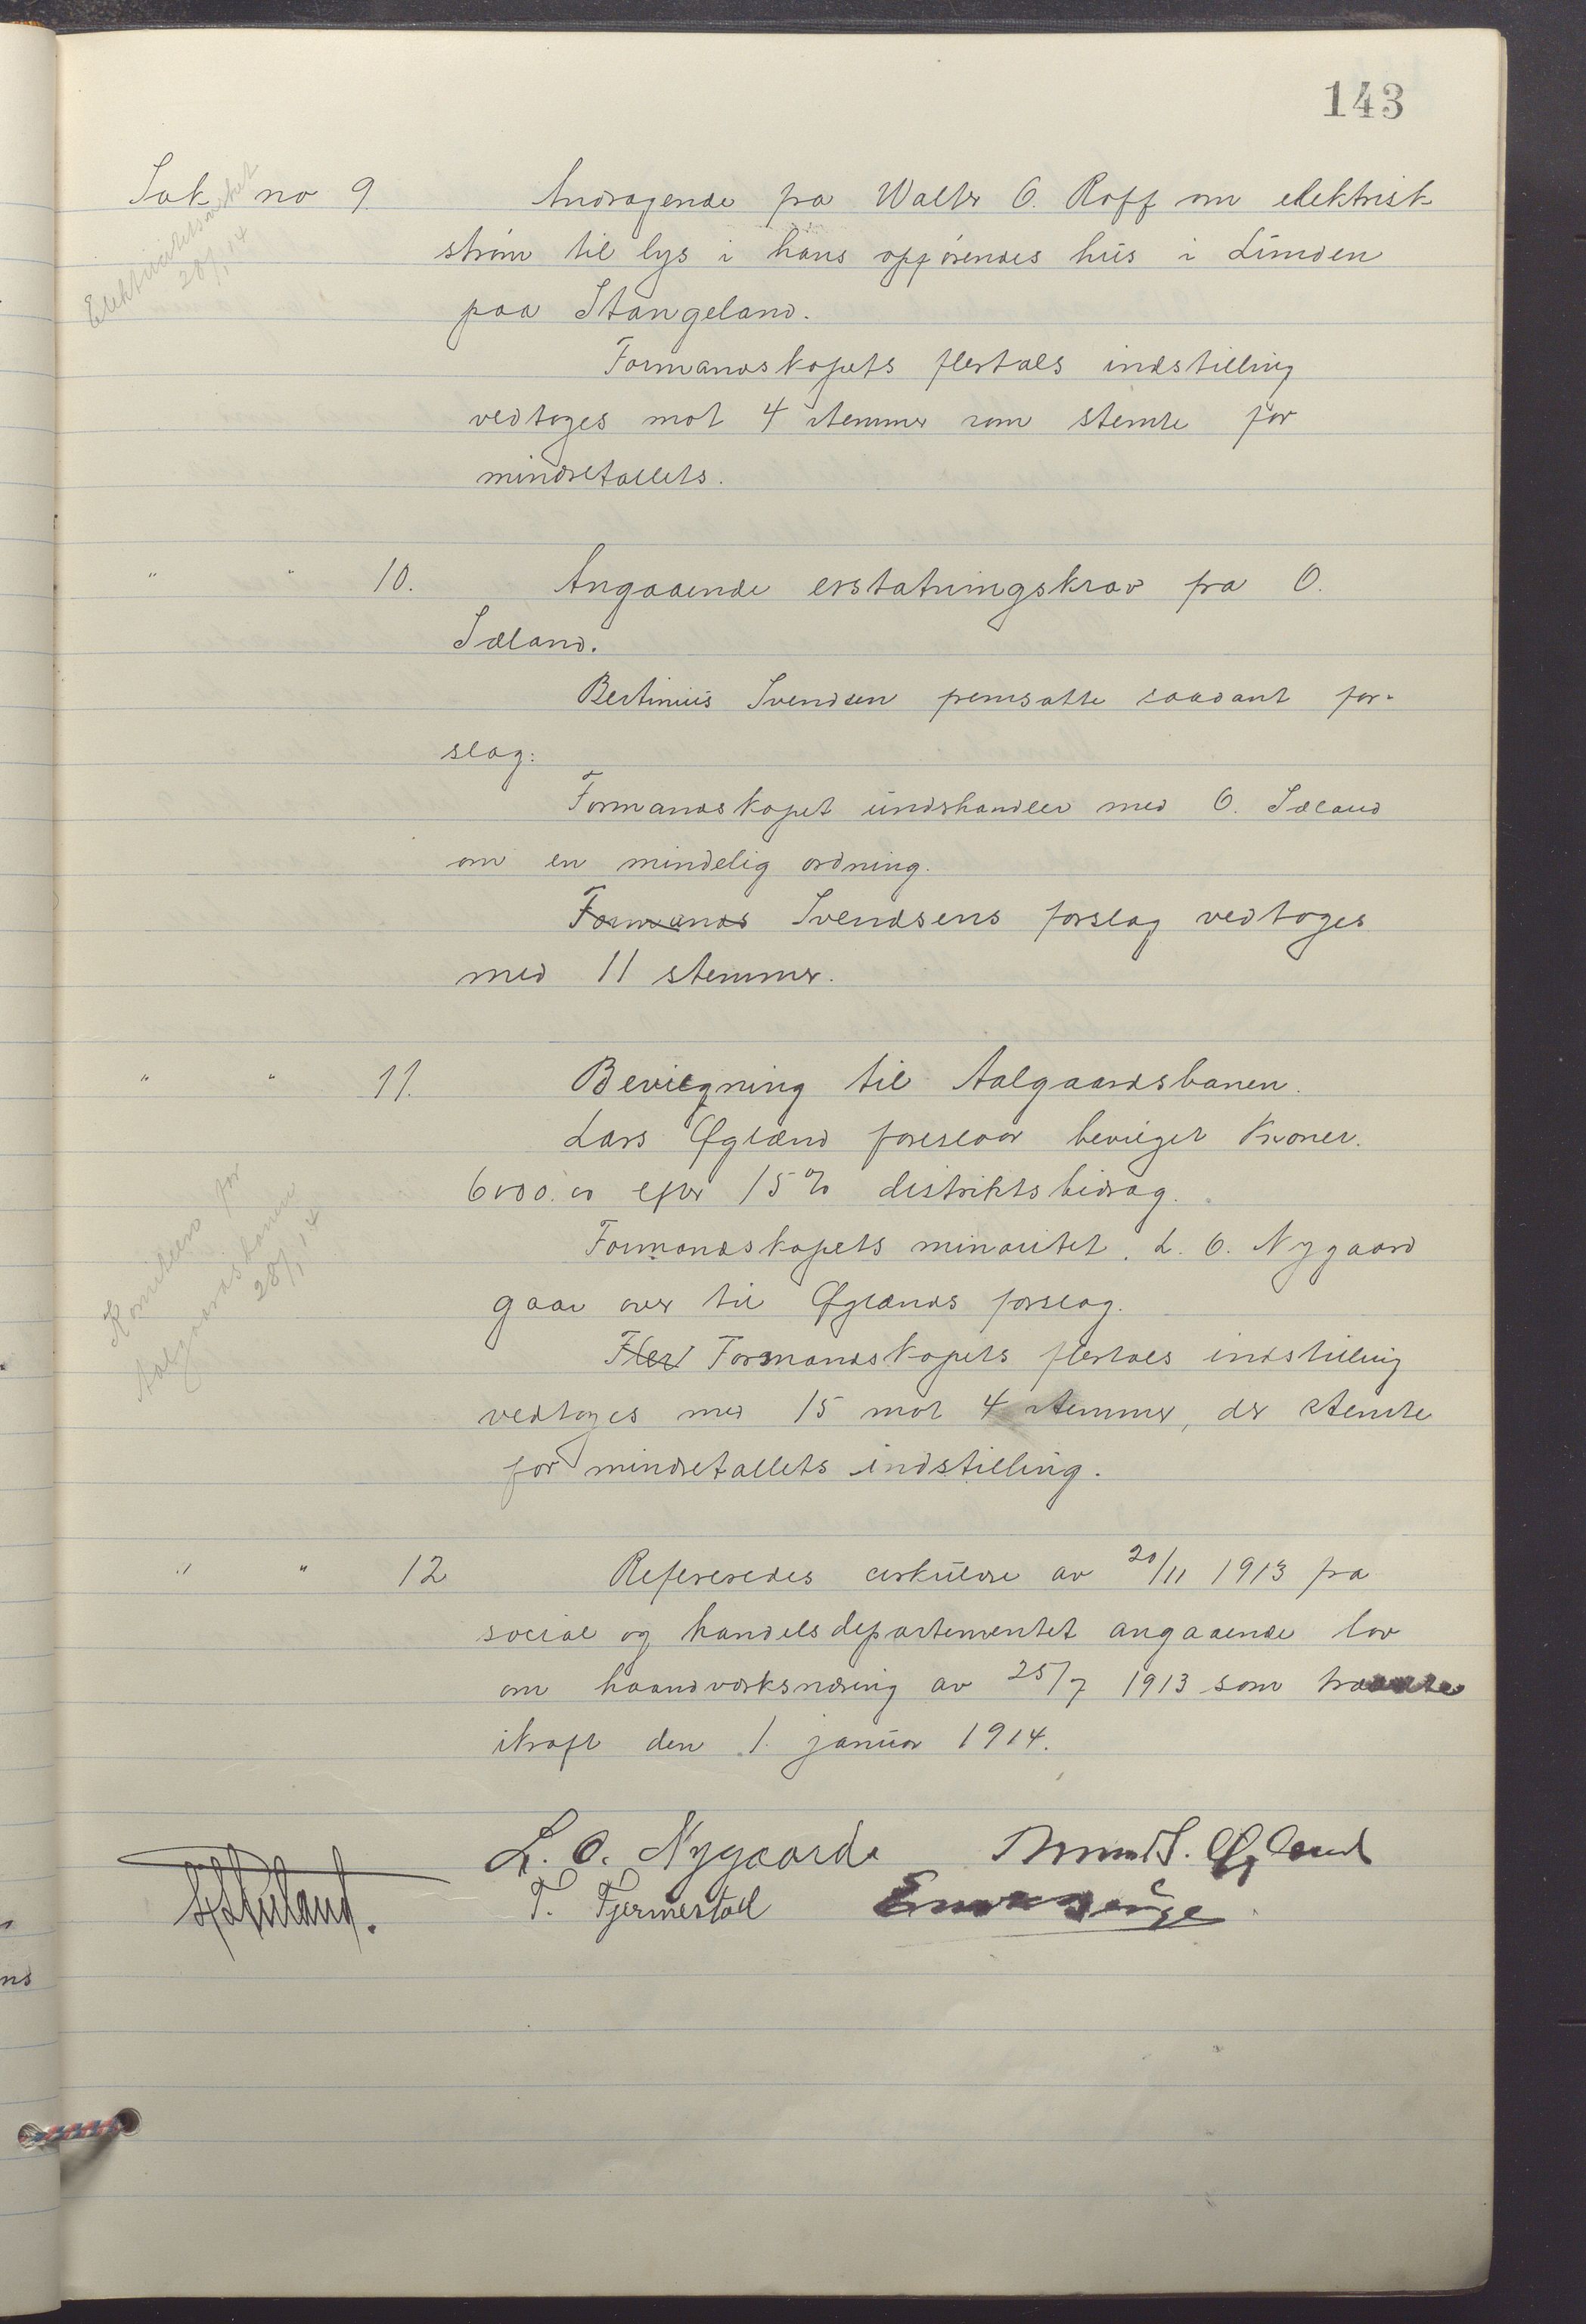 143
Sak no 9. Andragende fra Walter O. Roff om elektrisk
Elektricitetsverket
28/1 14
strøm til lys i hans opførendes hus i Lunden
paa Stangeland.
Formandskapets flertals indstilling
vedtoges mot 4 stemmer som stemte for
mindretallets.
" " 10. Angaaende erstatningskrav fra O.
Sæland.
Bertinius Svendsen fremsatte saadant for-
slag:
Formandskapet underhandler med O. Sæland
om en mindelig ordning.
Formands Svendsens forslag vedtoges
med 11 stemmer.
" " 11. Bevilgning til Aalgaardsbanen.
Lars Øglænd foreslaar bevilget kroner.
6000.00 efter 15% distriktsbidrag.
Komiteen for
Aalgaardsbanen
28/1 14
Formandskapets minoritet. L. O. Nygaard
gaar over til Øglænds forslag.
Fler Formandskapets flertals indstilling
vedtoges med 15 mot 4 stemmer, der stemte
for mindretallets indstilling.
" " 12 Refereredes cirkulære av 20/11 1913 fra
social og handelsdepartementet angaaende lov
om haandverksnæring av 25/7 1913 som
ikraft den 1. januar 1914.
L. O. Nygaard
T. Tjermestad
ns